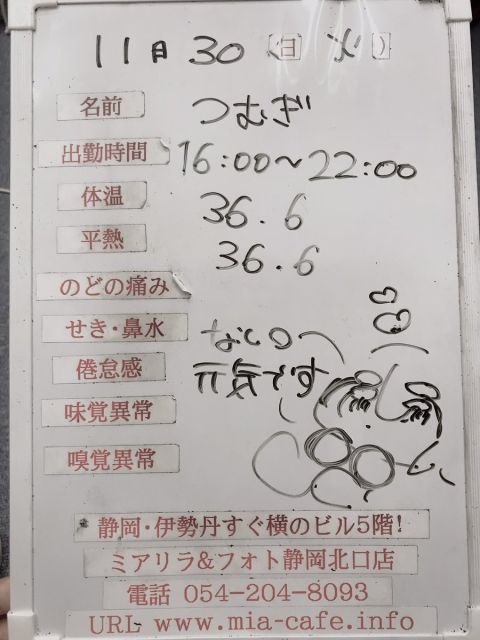 11月 30 (日 火)
名前 つむぎ
出勤時間 16:00~22:00
体温 36.6
平熱 36.6
のどの痛み
せき・鼻水 なし
倦怠感 元気です
味覚異常
嗅覚異常
静岡・伊勢丹すぐ横のビル5階!
ミアリラ&フォト静岡北口店
電話 054-204-8093
URL www.mia-cafe.info